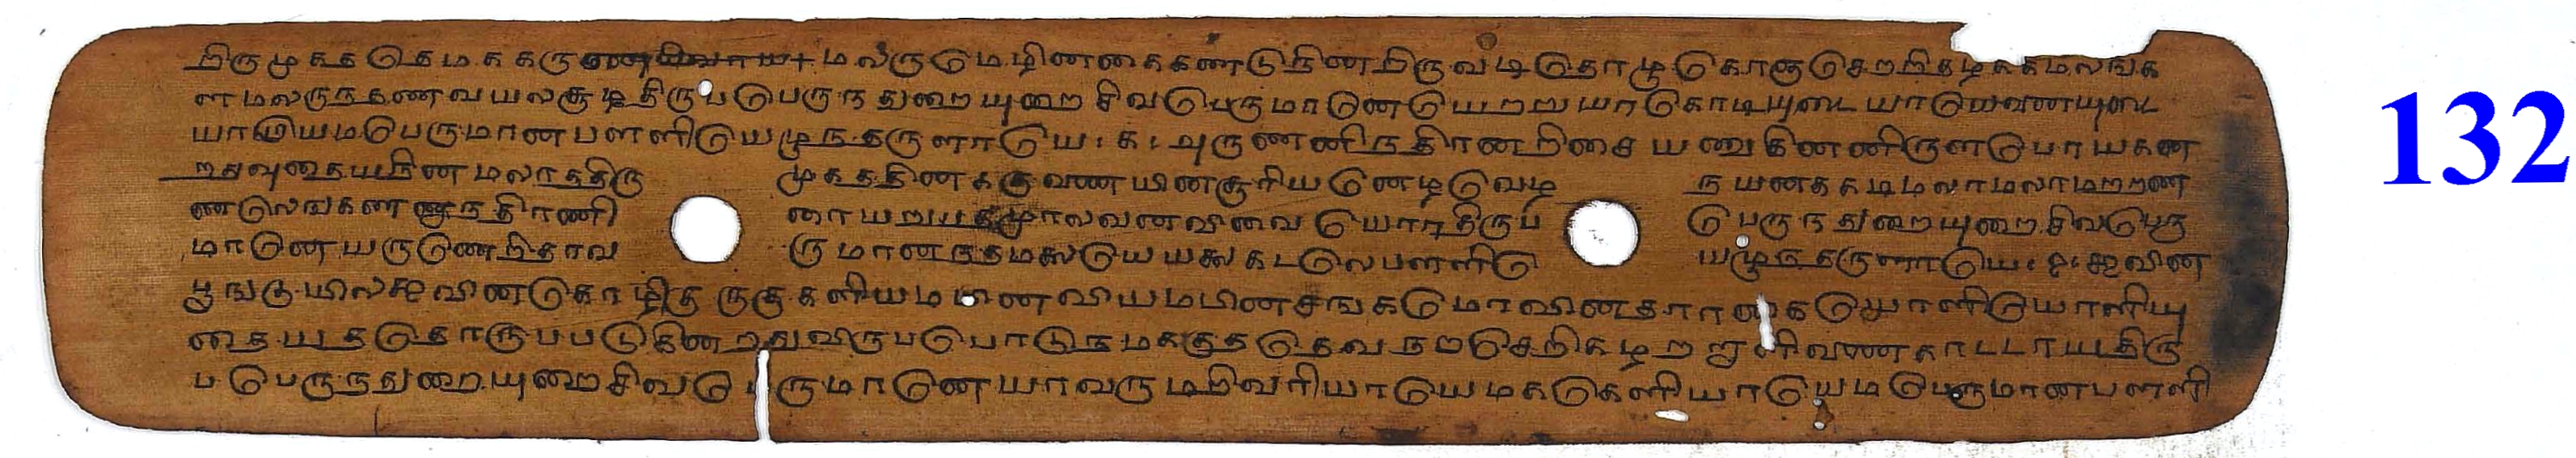 றிருமுகததெமககருமலருமெழினகைகணடுநினறிருவடிதொழுகொஞசெறறிதழககமலஙக
ளமலருநதணவயலசூழதிருபபெருநதுறையுறைசிவபெருமானெயெறறுயாகொடியுடையாயெனையுடை
யாயெயமபெருமானபளளியெழுநதருளாயெ: க: அருணணிநதிரனறிசையணுகினனிருளபொயகன
றதவுதையநினமலாததிருமுகததினகருணையினசூரியனெழவெழநயனககடிமலாமலாமறறண
ணலஙகணணாநதிரணிரையறுபதமுரலவனவிவையொாதிருபபெருநதுறையுறைசிவபெரு
மானெயருணெறிதரவருமானநதமலையெயலைகடலெபளளியெயழுநதருளாயெ: உ: கூவின
பூஙகுயிலகூவினகொழிகுருகுகளியமபினவியமபினசஙகமொவினதாரகையொளியொளியு
தையததொருபபடுகினறதுவிருபபொடுநமககுததெவநறசெறிகழறறாளிணைகாடடாயதிரு
பபெருநதுறையுறைசிவபெருமானெயாவருமறிவரியாயெமககெளியாயெமபெருமானபளளி